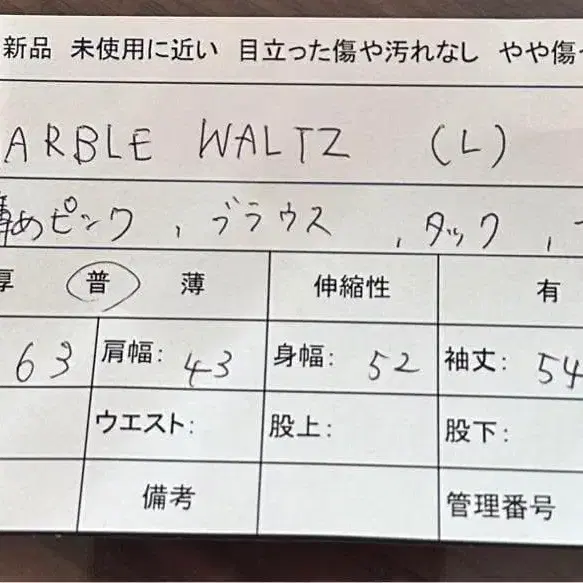 新品 未使用に近い 目立った傷や汚れなし やや傷
ARBLE WALTZ (L)
薄めピンク , ブラウス , タック ,
厚 普 薄 伸縮性 有
63 肩幅: 43 身幅: 52 袖丈: 54
ウエスト: 股上: 股下:
備考 管理番号